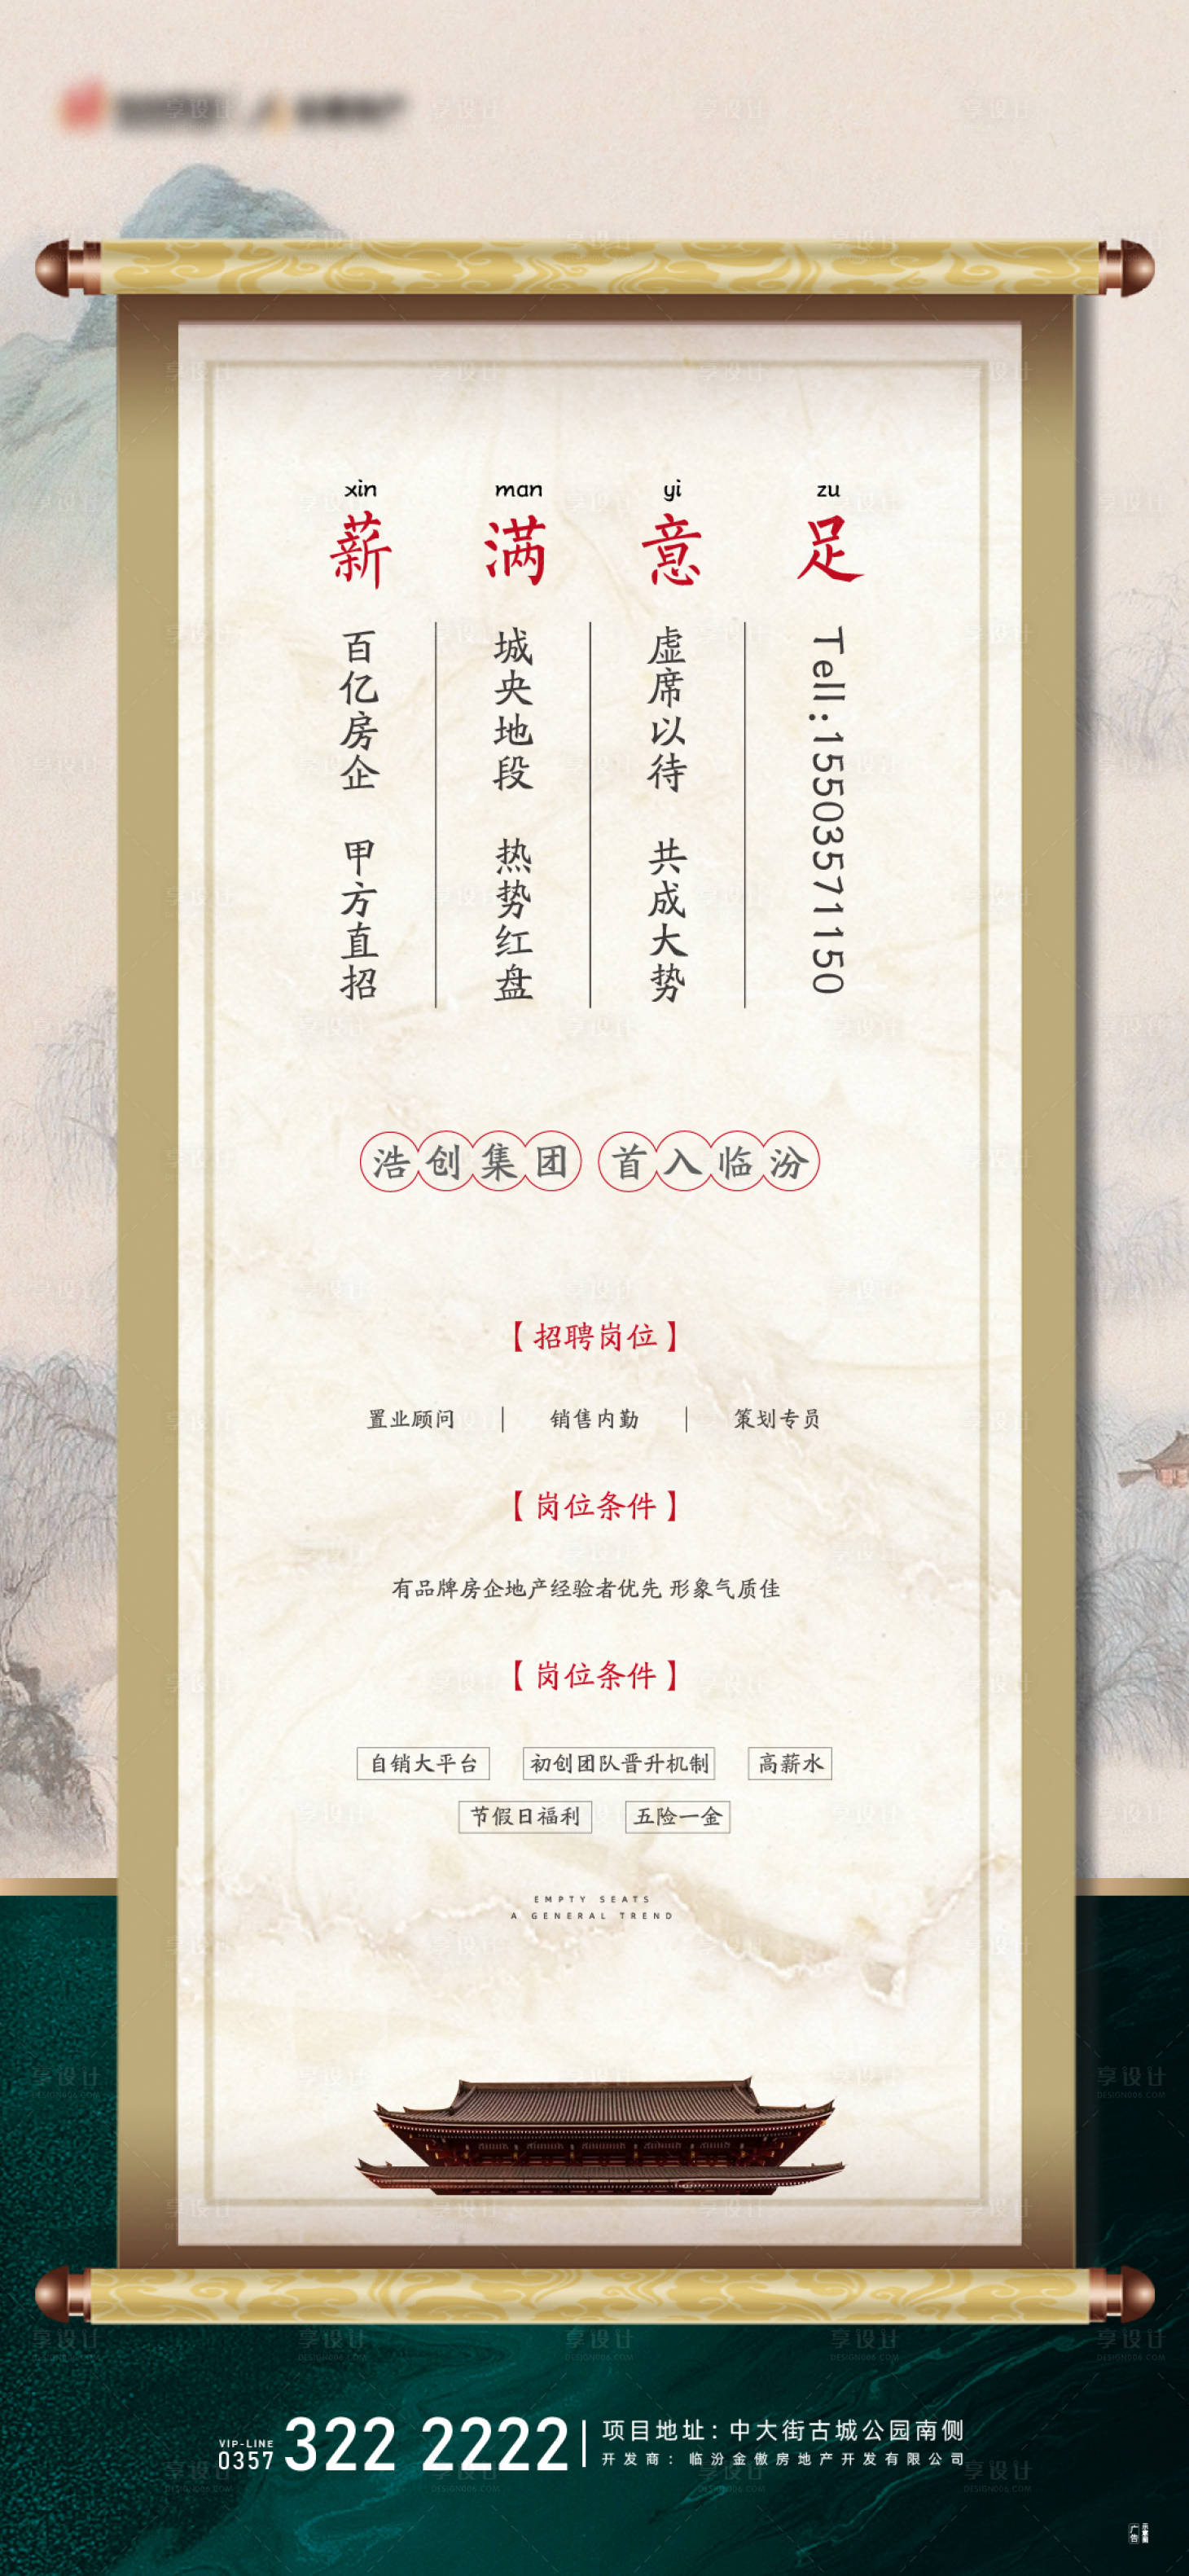 xin man yi zu
薪 满 意 足
百亿房企 甲方直招
城央地段 热势红盘
虚席以待 共成大势
Tell:15503571150
浩创集团 首入临汾
【招聘岗位】
置业顾问 | 销售内勤 | 策划专员
【岗位条件】
有品牌房企地产经验者优先 形象气质佳
【岗位条件】
自销大平台 初创团队晋升机制 高薪水
节假日福利 五险一金
EMPTY SEATS
A GENERAL TREND
VIP-LINE
0357 322 2222
项目地址：中大街古城公园南侧
开发商：临汾金傲房地产开发有限公司
广告
享设计
DESIGN006.COM